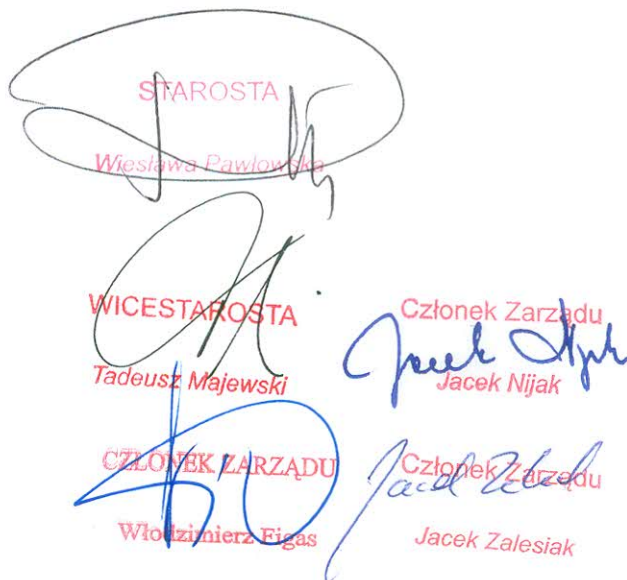 STAROSTA
Wiesława Pawłowska
WICESTAROSTA
Tadeusz Majewski
Członek Zarządu
Jacek Nijak
CZŁONEK ZARZĄDU
Włodzimierz Figas
Członek Zarządu
Jacek Zalesiak